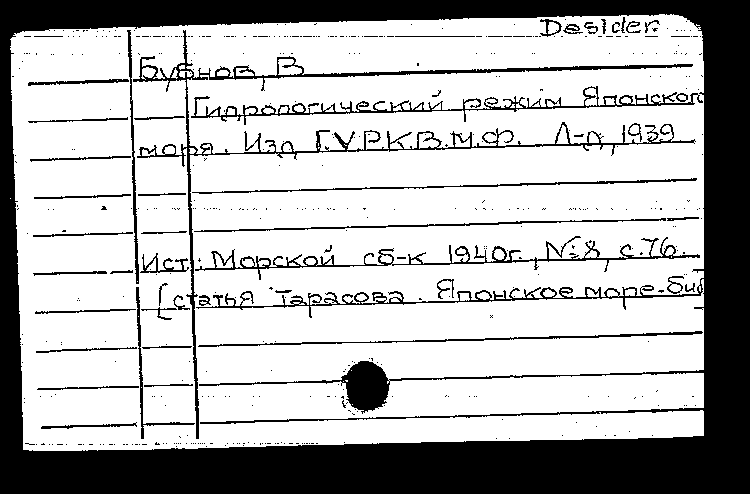 Desider.
Бубнов, В
Гидрологический режим Японского
моря. Изд. Г.У.Р.К.В.М.Ф. Л-д, 1939
Ист.: Морской сб-к 1940г., №8, с.76.
[статья Тарасова. Японское море-биб